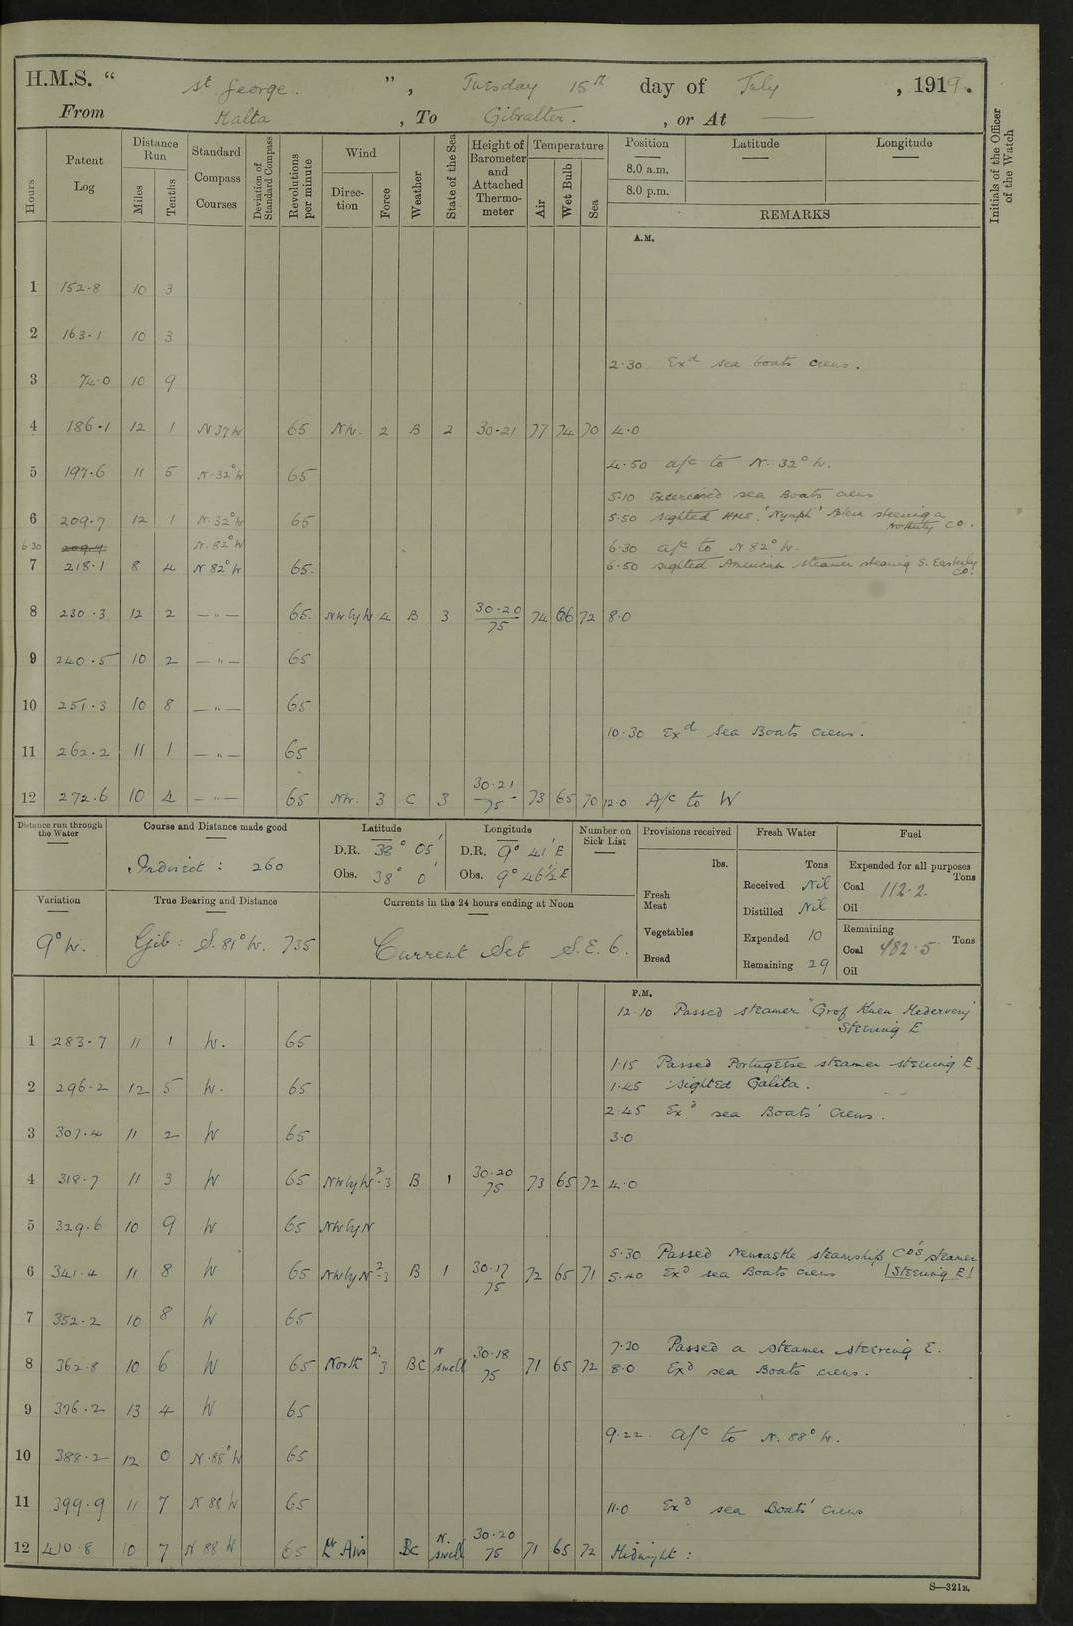 H.M.S. “ St. George. ”, Tuesday 15th day of July, 1919.
From Malta, To Gibralter., or At —
Hours
Patent Log
Distance Run
Miles
Tenths
Standard Compass Courses
Deviation of Standard Compass
Revolutions per minute
Wind
Direction
Force
Weather
State of the Sea
Height of Barometer and Attached Thermometer
Temperature
Air
Wet Bulb
Sea
Position
Latitude
Longitude
8.0 a.m.
8.0 p.m.
REMARKS
Initials of the Officer of the Watch
A.M.
1 152.8 10 3
2 163.1 10 3
2.30 Exd sea boats crews.
3 74.0 10 9
4 186.1 12 1 N 37 W 65 NW. 2 B 2 30.21 77 74 70 4.0
4.50 a/c to N. 32° W.
5 197.6 11 5 N. 32° W 65
5.10 Exercised sea Boats crews
6 209.7 12 1 N. 32° W 65
5.50 sighted HMS. 'Nymph' steering a Northerly Co.
6.30 N. 82° W
6.30 a/c to N 82° W.
7 218.1 8 4 N 82° W 65.
6.50 sighted American steamer steering S. Easterly Co.
8 230.3 12 2 — " — 65. NW by W 4 B 3 30.20 75 74 66 72 8.0
9 240.5 10 2 — " — 65
10 251.3 10 8 — " — 65
10.30 Exd Sea Boats Crews.
11 262.2 11 1 — " — 65
12 272.6 10 4 — " — 65 NW. 3 C 3 30.21 75 73 65 70 12.0 A/c to W
Distance run through the Water
Course and Distance made good
Indirect : 260
Latitude
D.R. 38° 05'
Obs. 38° 0'
Longitude
D.R. 9° 41' E
Obs. 9° 46½' E
Number on Sick List
Provisions received
lbs.
Fresh Meat
Vegetables
Bread
Fresh Water
Tons
Received Nil
Distilled Nil
Expended 10
Remaining 29
Fuel
Expended for all purposes
Tons
Coal 112.2.
Oil
Remaining
Coal 482.5 Tons
Oil
Variation
9° W.
True Bearing and Distance
Gib: S. 81° W. 735
Currents in the 24 hours ending at Noon
Current Set S.E. 6.
P.M.
12.10 Passed steamer "Grof Kuen Hedervary" Steering E
1 283.7 11 1 W. 65
1.15 Passed Portugese steamer steering E.
2 296.2 12 5 W. 65
1.45 Sighted Galita.
2.45 Exd sea Boats' Crews.
3 307.4 11 2 W 65
3.0
4 318.7 11 3 W 65 NW by W 2-3 B 1 30.20 75 73 65 72 4.0
5 329.6 10 9 W 65 NW by N
5.30 Passed Newcastle steamship Co's steamer Steering E
6 341.4 11 8 W 65 NW by N 2-3 B 1 30.17 75 72 65 71 5.40 Exd sea Boats crews
7 352.2 10 8 W 65
7.30 Passed a steamer steering E.
8 362.8 10 6 W 65 North 2.3 BC N swell 30.18 75 71 65 72 8.0 Exd sea Boats crews.
9 376.2 13 4 W 65
9.22. a/c to N. 88° W.
10 388.2 12 0 N. 88° W 65
11 399.9 11 7 N 88 W 65 11.0 Exd sea Boats' crews
12 410.8 10 7 N 88 W 65 Lt Airs BC N. swell 30.20 75 71 65 72 Midnight :
S—321B.